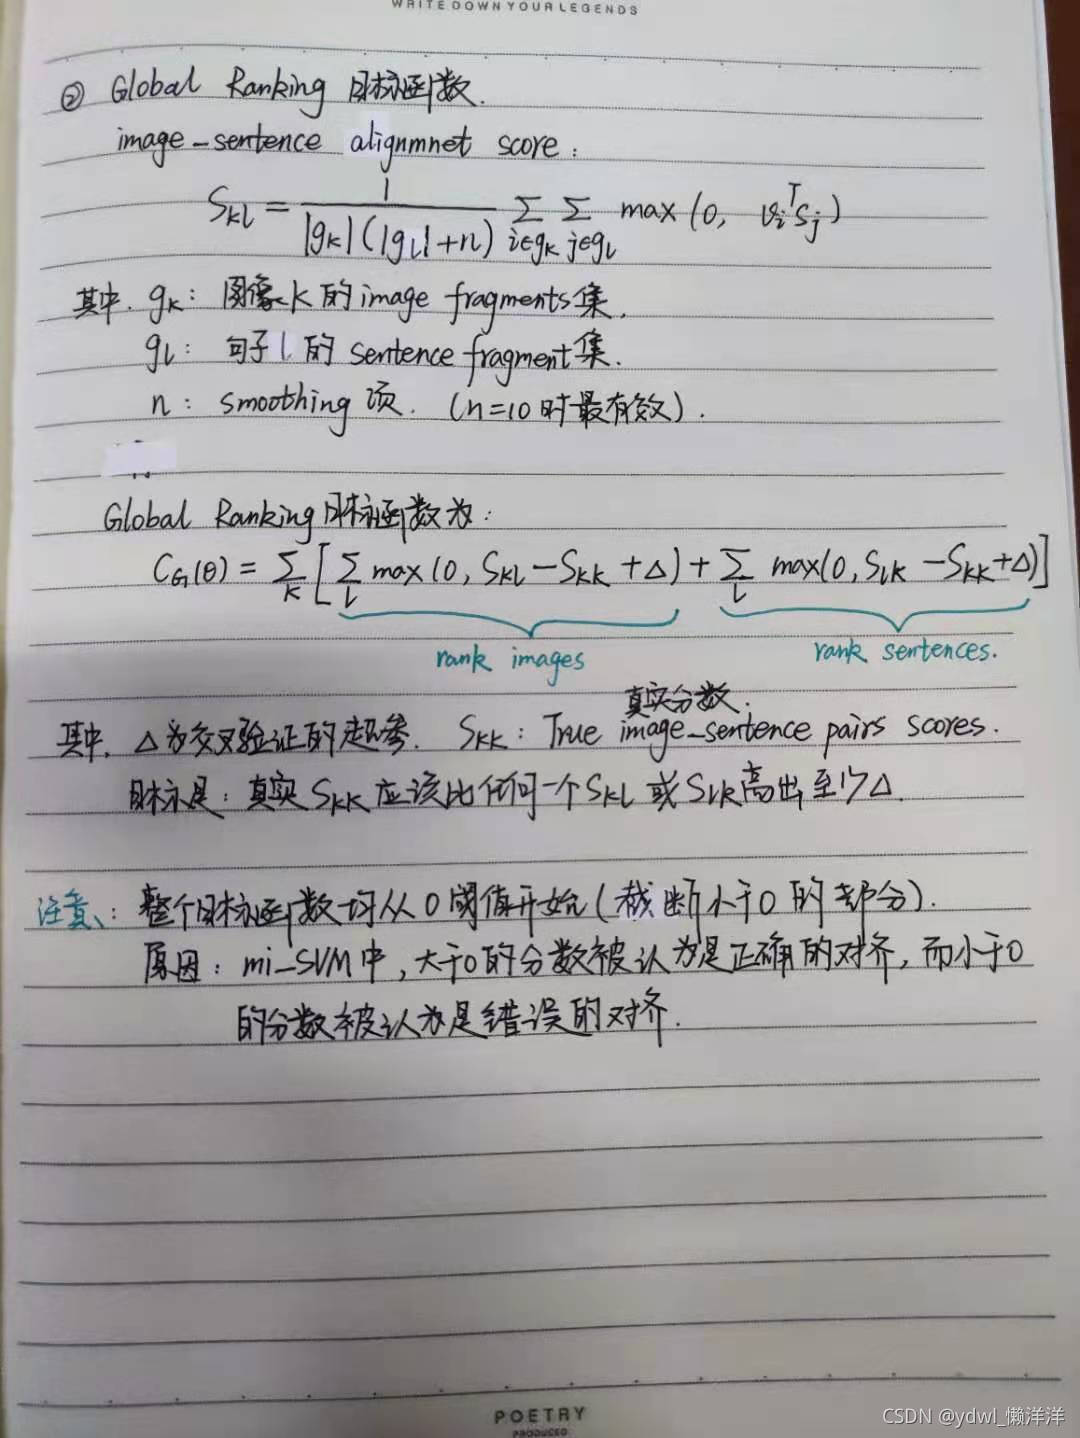 WRITE DOWN YOUR LEGENDS
② Global Ranking 目标函数.
image-sentence alignmnet score:
S_{kl} = \frac{1}{|g_k|(|g_l|+n)} \sum_{i∈g_k} \sum_{j∈g_l} max(0, v_i^T s_j)
其中. g_k: 图像k的image fragments集.
g_l: 句子l的 sentence fragment集.
n: smoothing 项. (n=10时最有效).
Global Ranking目标函数为:
C_G(θ) = \sum_k [\sum_l max(0, S_{kl} - S_{kk} + Δ) + \sum_l max(0, S_{lk} - S_{kk} + Δ)]
rank images rank sentences.
真实分数.
其中, Δ为交叉验证的超参. S_{kk}: True image-sentence pairs scores.
目标是: 真实S_{kk}应该比任何一个S_{kl}或S_{lk}高出至少Δ.
注意: 整个目标函数均从0阈值开始(截断小于0的部分).
原因: mi-SVM中, 大于0的分数被认为是正确的对齐, 而小于0
的分数被认为是错误的对齐.
POETRY
PRODUCED
CSDN @ydwl_懒洋洋